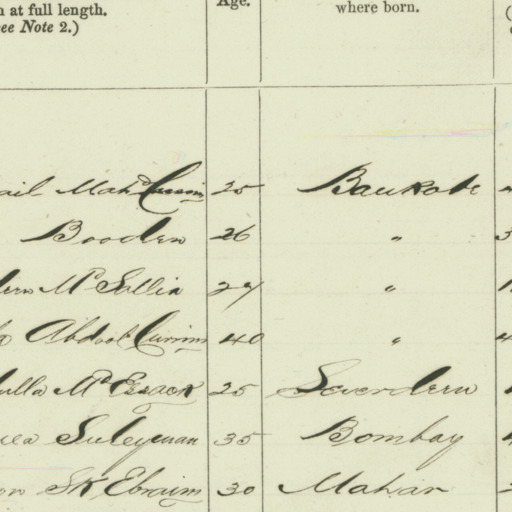 n at full length.
ee Note 2.)
Age.
where born.
(
ail Mahd Cassim 25 Baukote
Booden 26 "
M'd Sallia 27 "
Abdool Currim 40 "
ulla M'd Essack 25 Severdern
Suleyman 35 Bombay
on Sk Ebraim 30 Mahar